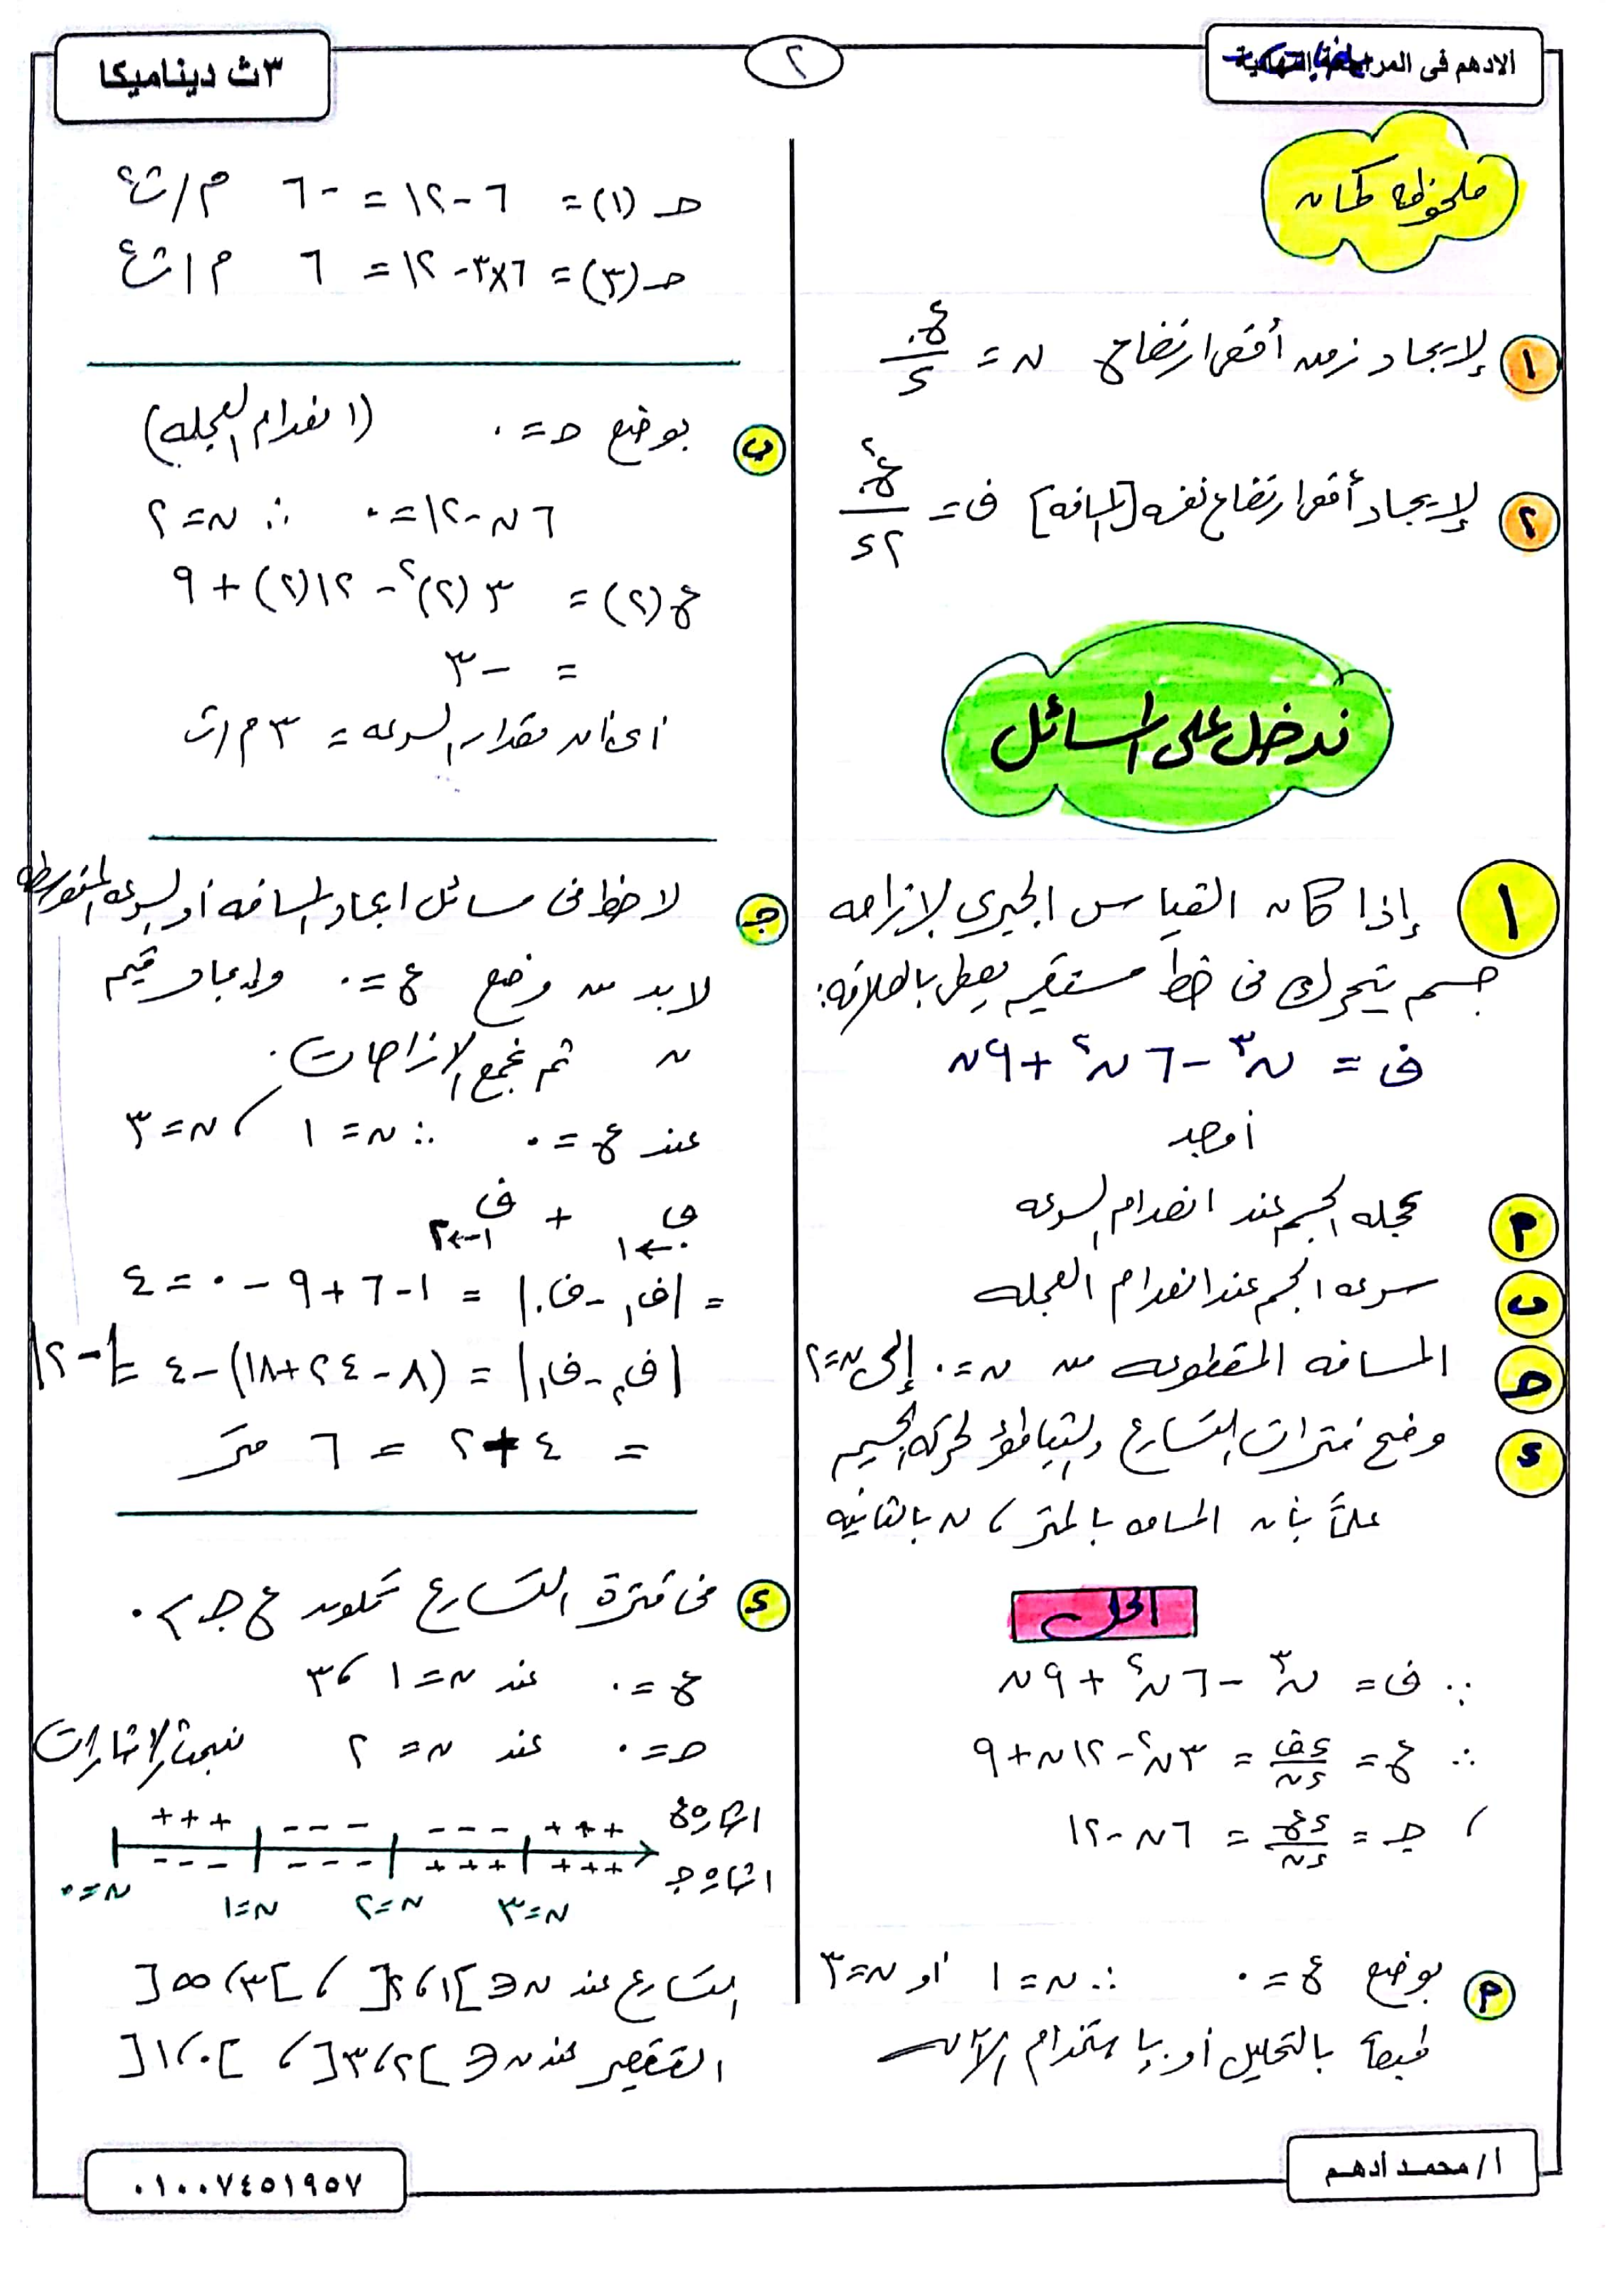 الادهم فى المراجعة النهائية
٢
٣ث ديناميكا
ملحوظة كمان
١ لإيجاد زمن أقصى ارتفاع ن = ع. / ء
٢ لإيجاد أقصى ارتفاع نفسه [المسافه] ف = ع.² / ٢ء
ندخل على المسائل
١ إذا كان القياس الجبرى لإزاحه
جسم يتحرك فى خط مستقيم يعطى بالعلاقه:
ف = ن³ - ٦ن² + ٩ن
أوجد
م عجله الجسم عند انعدام السرعه
ب سرعه الجسم عند انعدام العجله
حـ المسافه المقطوعه من ن = ٠ إلى ن = ٢
ء وضح فترات التسارع والتباطؤ لحركه الجسم
علماً بأن المسافه بالمتر ، ن بالثانيه
الحل
∵ ف = ن³ - ٦ن² + ٩ن
∴ ع = ءف/ءن = ٣ن² - ١٢ن + ٩
، حـ = ءع/ءن = ٦ن - ١٢
م بوضع ع = ٠ ∴ ن = ١ او ن = ٣
طبعاً بالتحليل أو بإستخدام الآله
حـ (١) = ٦ - ١٢ = -٦ م/ث²
حـ (٣) = ٦×٣ - ١٢ = ٦ م/ث²
ب بوضع حـ = ٠ (انعدام العجله)
٦ن - ١٢ = ٠ ∴ ن = ٢
ع(٢) = ٣(٢)² - ١٢(٢) + ٩
= -٣
اى ان مقدار السرعه = ٣ م/ث
جـ لاحظ فى مسائل ايجاد المسافه أو السرعه المتوسطه
لابد من وضع ع = ٠ وإيجاد قيم
ن ثم نجمع الإزاحات.
عند ع = ٠ ∴ ن = ١ ، ن = ٣
ف٠←١ + ف١←٢
= |ف١ - ف٠| = ١ - ٦ + ٩ - ٠ = ٤
|ف٢ - ف١| = (٨ - ٢٤ + ١٨) - ٤ = |-٢|
= ٤ + ٢ = ٦ متر
ء فى فترة التسارع تكون ع حـ > ٠
ع = ٠ عند ن = ١ ، ٣
حـ = ٠ عند ن = ٢ نبحث الإشارات
+++ --- --- +++ اشارة ع
--- --- +++ +++ اشارة حـ
ن=٠ ن=١ ن=٢ ن=٣
التسارع عند ن ∈ ]١،٢[ ، ]٣،∞[
التقصير عند ن ∈ ]٢،٣[ ، ]٠،١[
أ/ محمد أدهم
٠١٠٠٧٤٥١٩٥٧